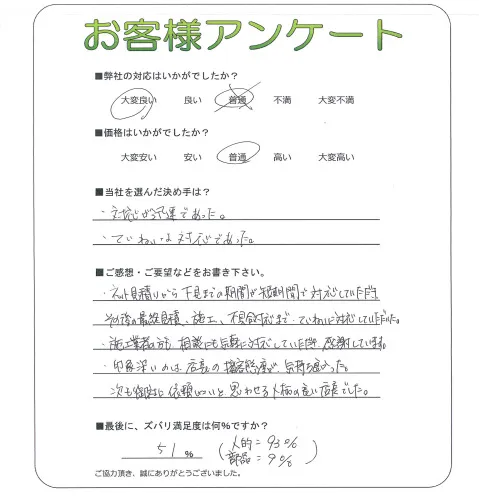 お客様アンケート
■弊社の対応はいかがでしたか？
大変良い 良い 普通 不満 大変不満
■価格はいかがでしたか？
大変安い 安い 普通 高い 大変高い
■当社を選んだ決め手は？
・対応が迅速であった。
・ていねいな対応であった。
■ご感想・ご要望などをお書き下さい。
・ネット見積りから下見までの期間が短期間で対応していただき
その後の最終見積、施工、不具合対応まで、ていねいに対応していただいた。
・施工業者の方も相談にも気軽に対応していただき、感謝しています。
・印象深いのは店長の接客態度が気持ち良かった。
次も御社に依頼したいと思わせる人柄の良い店長でした。
■最後に、ズバリ満足度は何%ですか？
51 %
(人的＝93%
部品＝9%)
ご協力頂き、誠にありがとうございました。